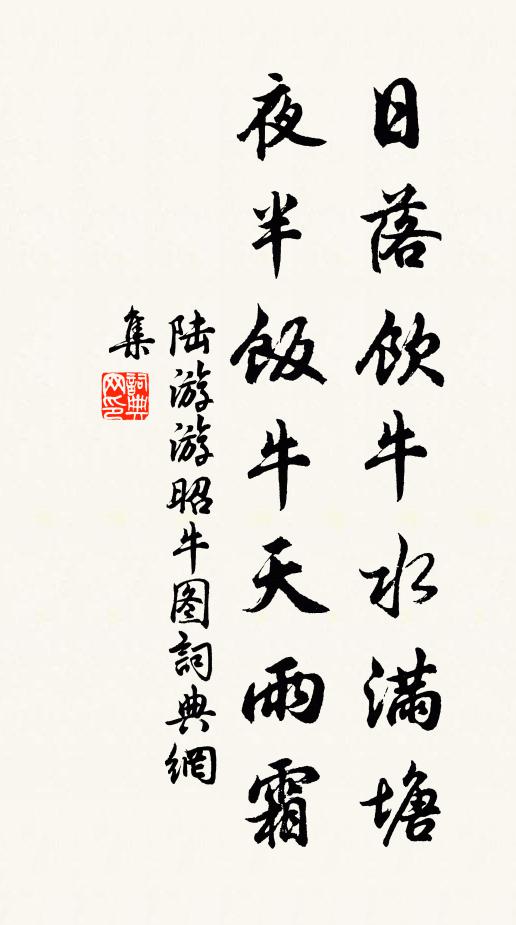 日落飲牛水滿塘
夜半飯牛天雨霜
陆游游昭牛图詞典網
集
詞典网印